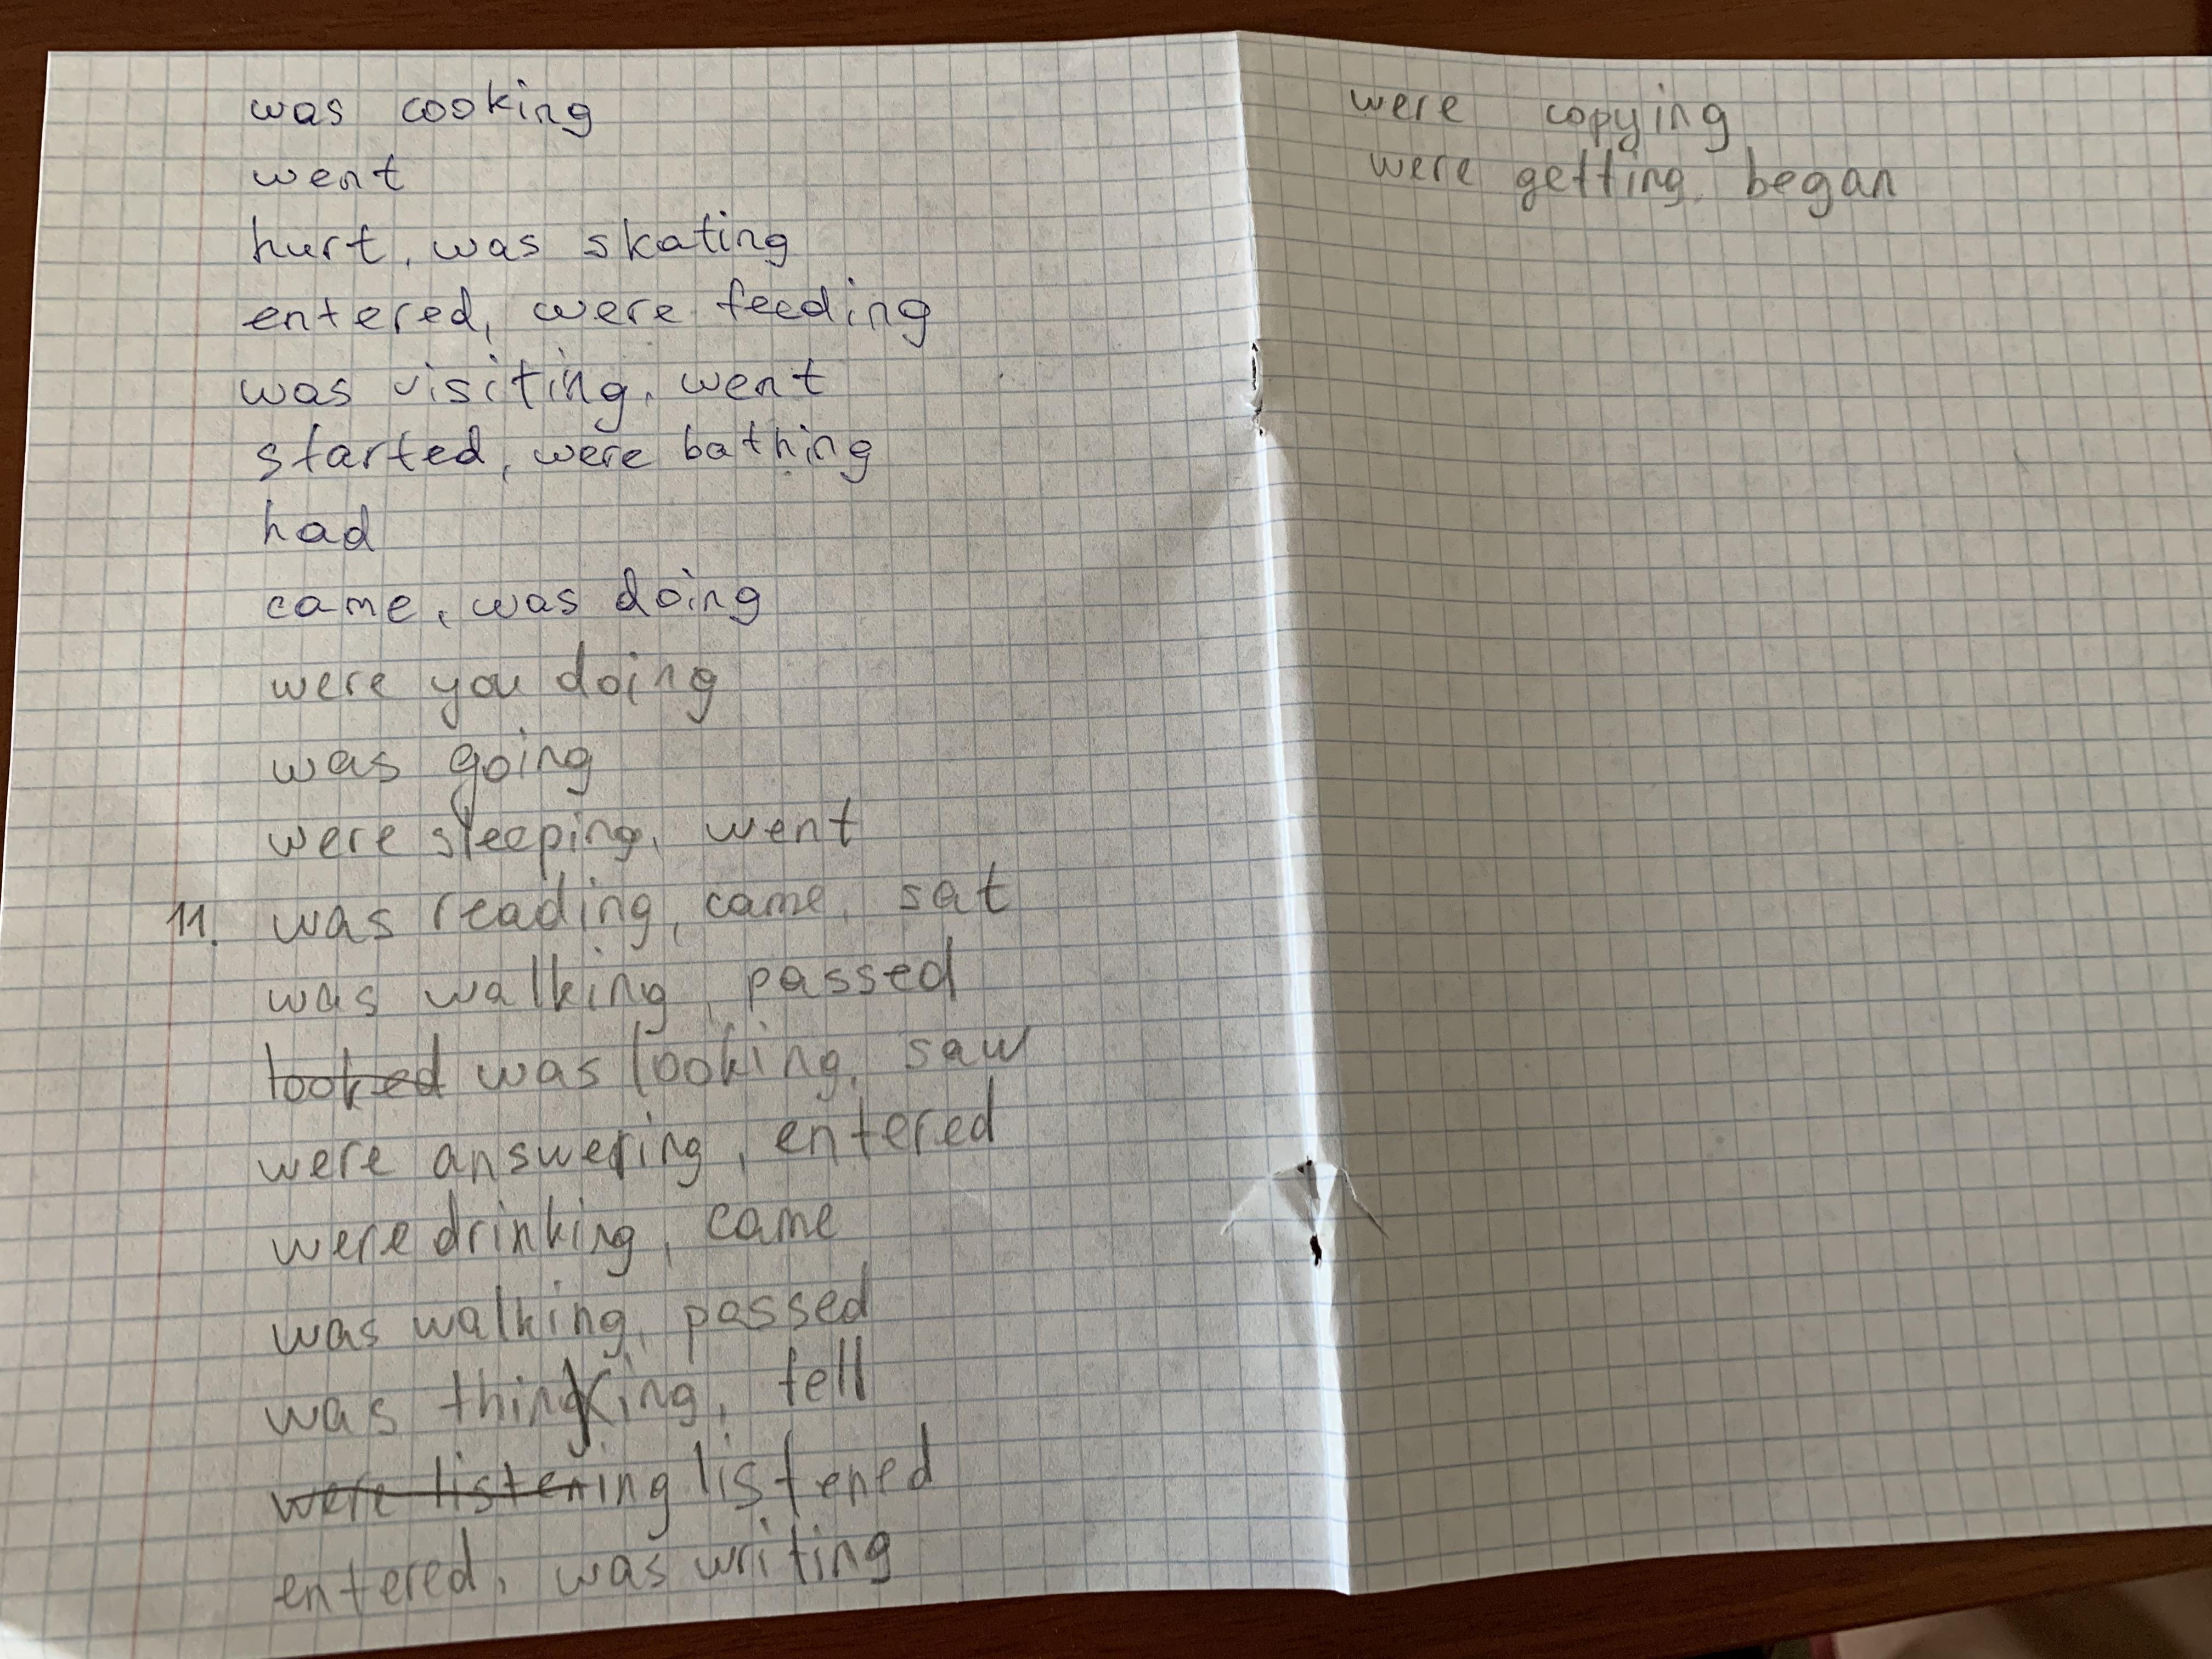 was cooking
went
hurt, was skating
entered, were feeding
was visiting, went
started, were bathing
had
came, was doing
were you doing
was going
were sleeping, went
11. was reading, came, sat
was walking, passed
looked was looking, saw
were answering, entered
were drinking, came
was walking, passed
was thinking, fell
were listening listened
entered, was writing
were copying
were getting, began